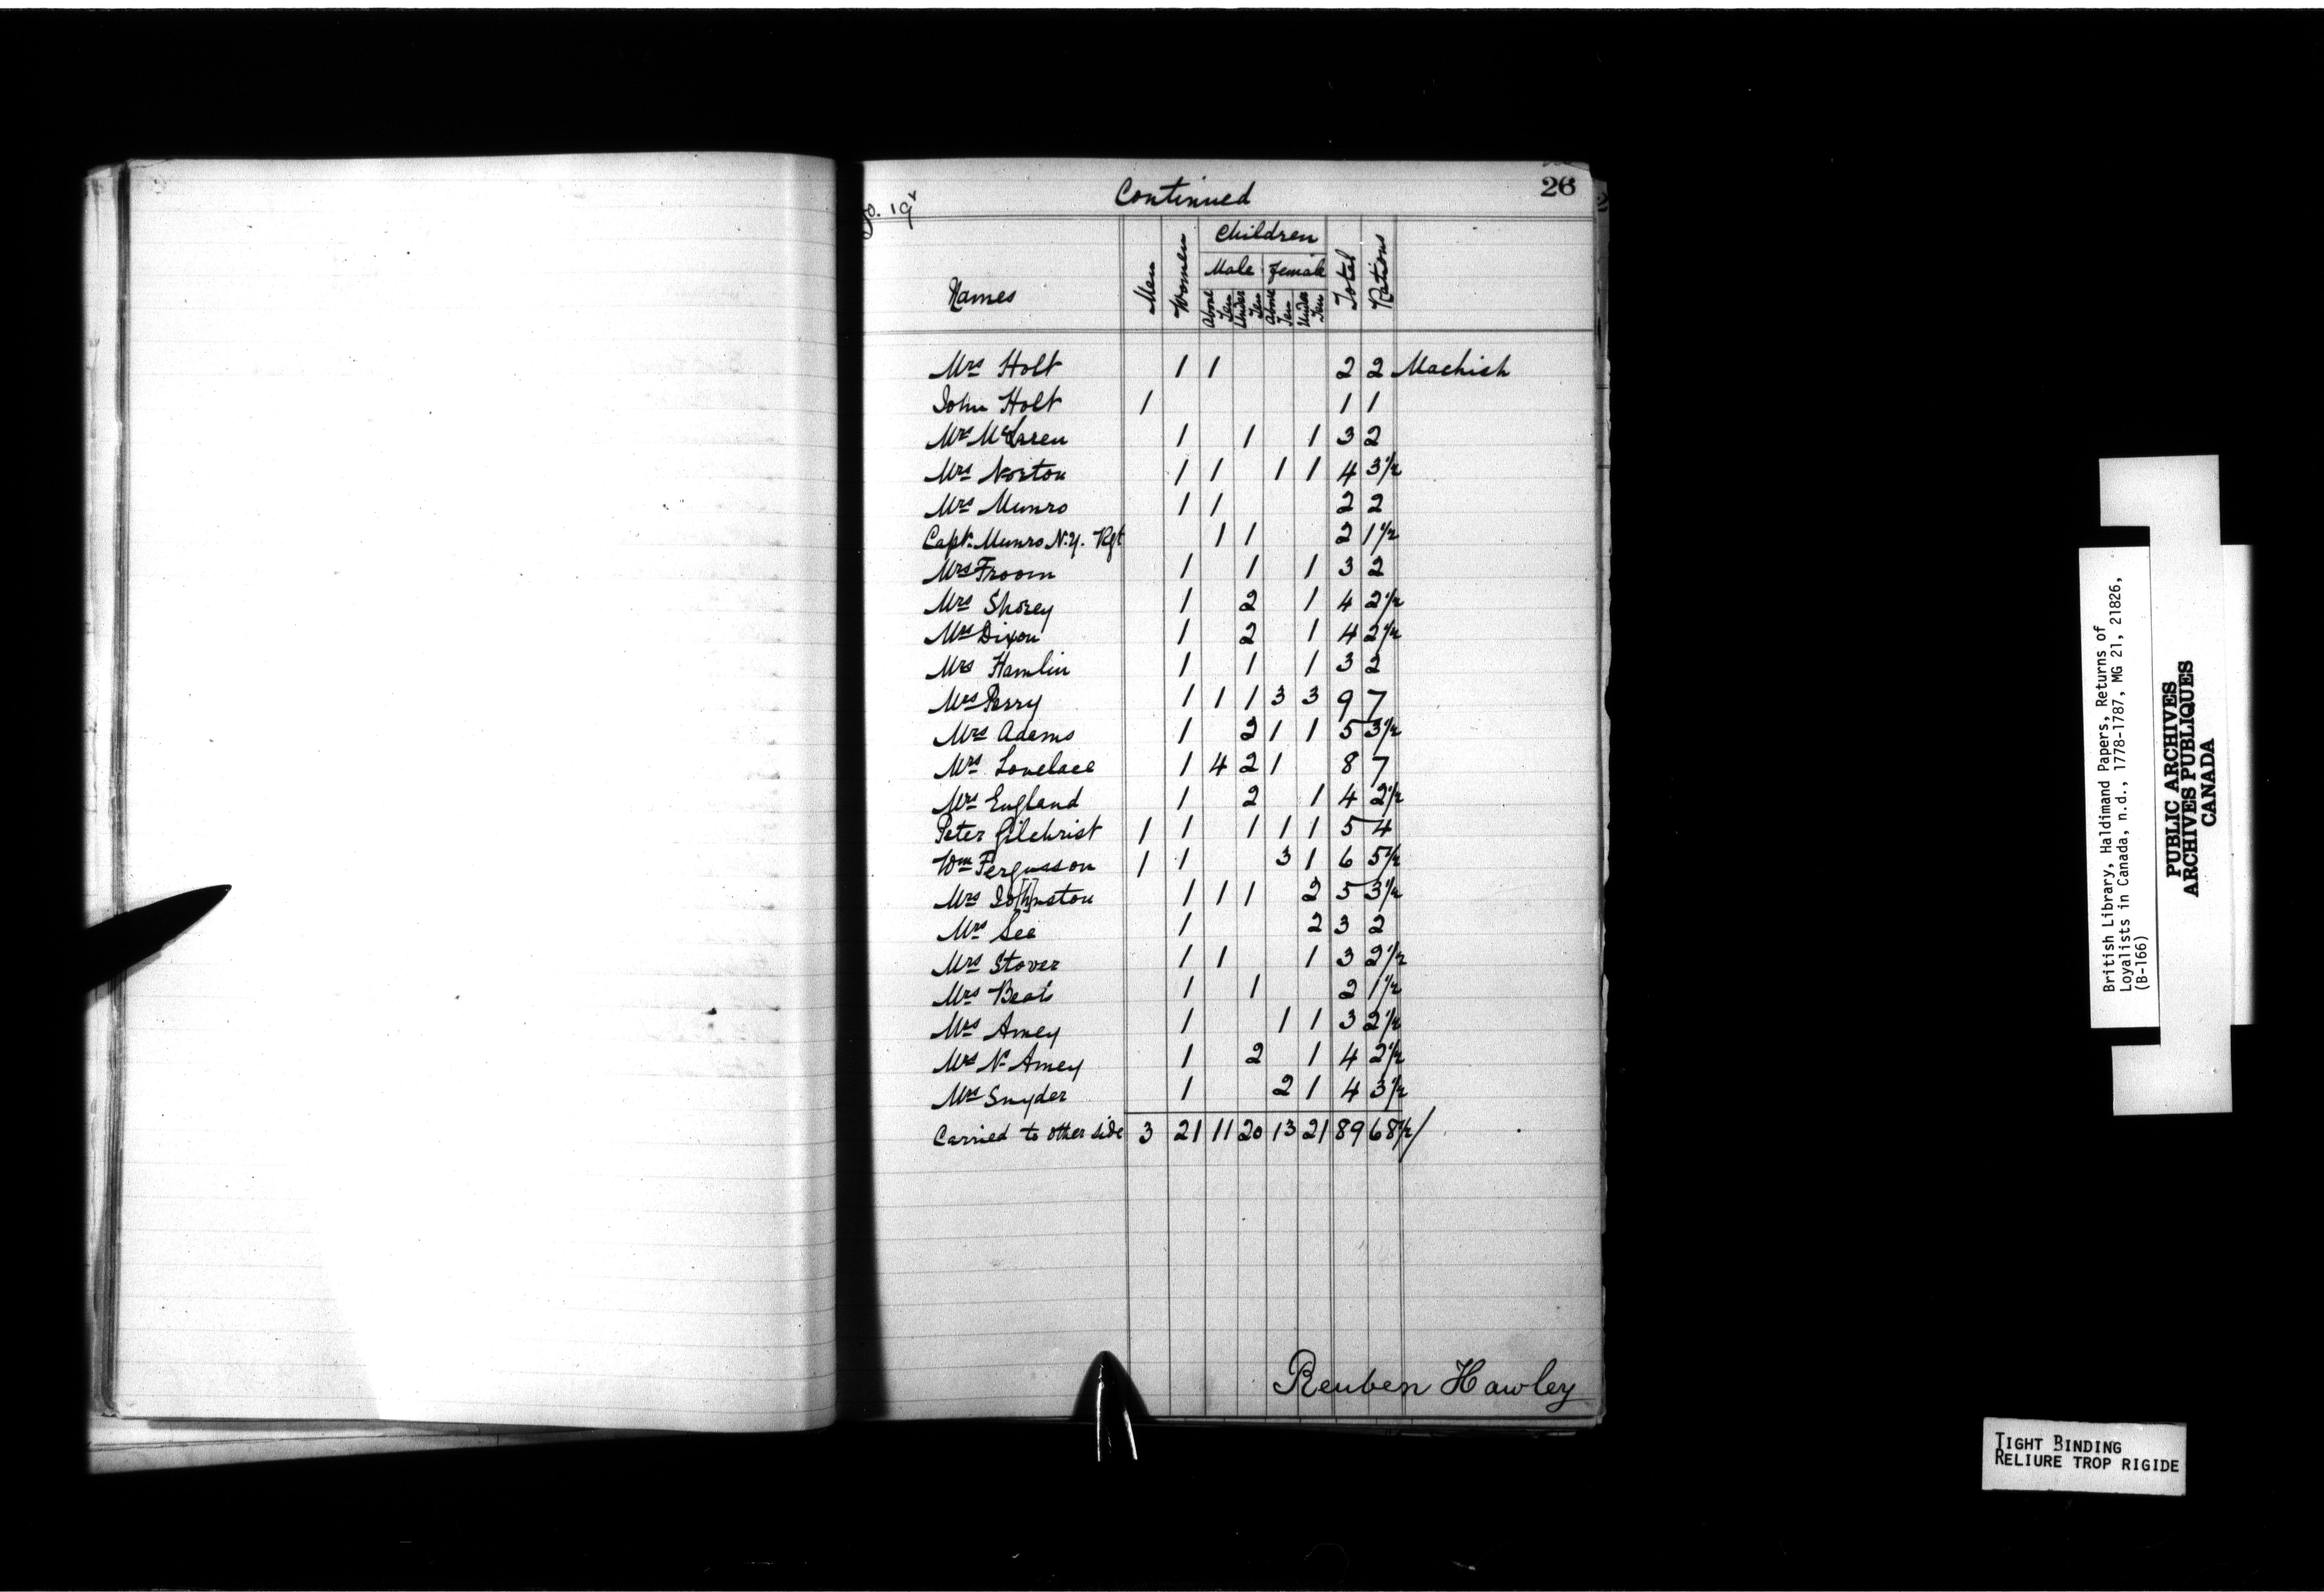 Continued
26
fo. 19v
Names
Men
Women
Children
Male
Female
Above Ten
Under Ten
Above Ten
Under Ten
Total
Rations
Mrs Holt 1 1 2 2 Machish
John Holt 1 1 1
Mrs McLaren 1 1 1 3 2
Mrs Norton 1 1 1 1 4 3 1/2
Mrs Munro 1 1 2 2
Capt. Munro N.Y. Rgt 1 1 2 1 1/2
Mrs Froom 1 1 1 3 2
Mrs Shorey 1 2 1 4 2 1/2
Mrs Dixon 1 2 1 4 2 1/2
Mrs Hamlin 1 1 1 3 2
Mrs Perry 1 1 1 3 3 9 7
Mrs Adems 1 2 1 1 5 3 1/2
Mrs Lovelace 1 4 2 1 8 7
Mrs England 1 2 1 4 2 1/2
Peter Gilchrist 1 1 1 1 1 5 4
Wm Fergusson 1 1 3 1 6 5 1/2
Mrs Jo[h]nston 1 1 1 2 5 3 1/2
Mrs See 1 2 3 2
Mrs Stover 1 1 1 3 2 1/2
Mrs Beats 1 1 2 1 1/2
Mrs Amey 1 1 1 3 2 1/2
Mrs N. Amey 1 2 1 4 2 1/2
Mrs Snyder 1 2 1 4 3 1/2
Carried to other side 3 21 11 20 13 21 89 68 1/2/
Reuben Hawley
British Library, Haldimand Papers, Returns of
Loyalists in Canada, n.d., 1778-1787, MG 21, 21826,
(B-166)
PUBLIC ARCHIVES
ARCHIVES PUBLIQUES
CANADA
TIGHT BINDING
RELIURE TROP RIGIDE